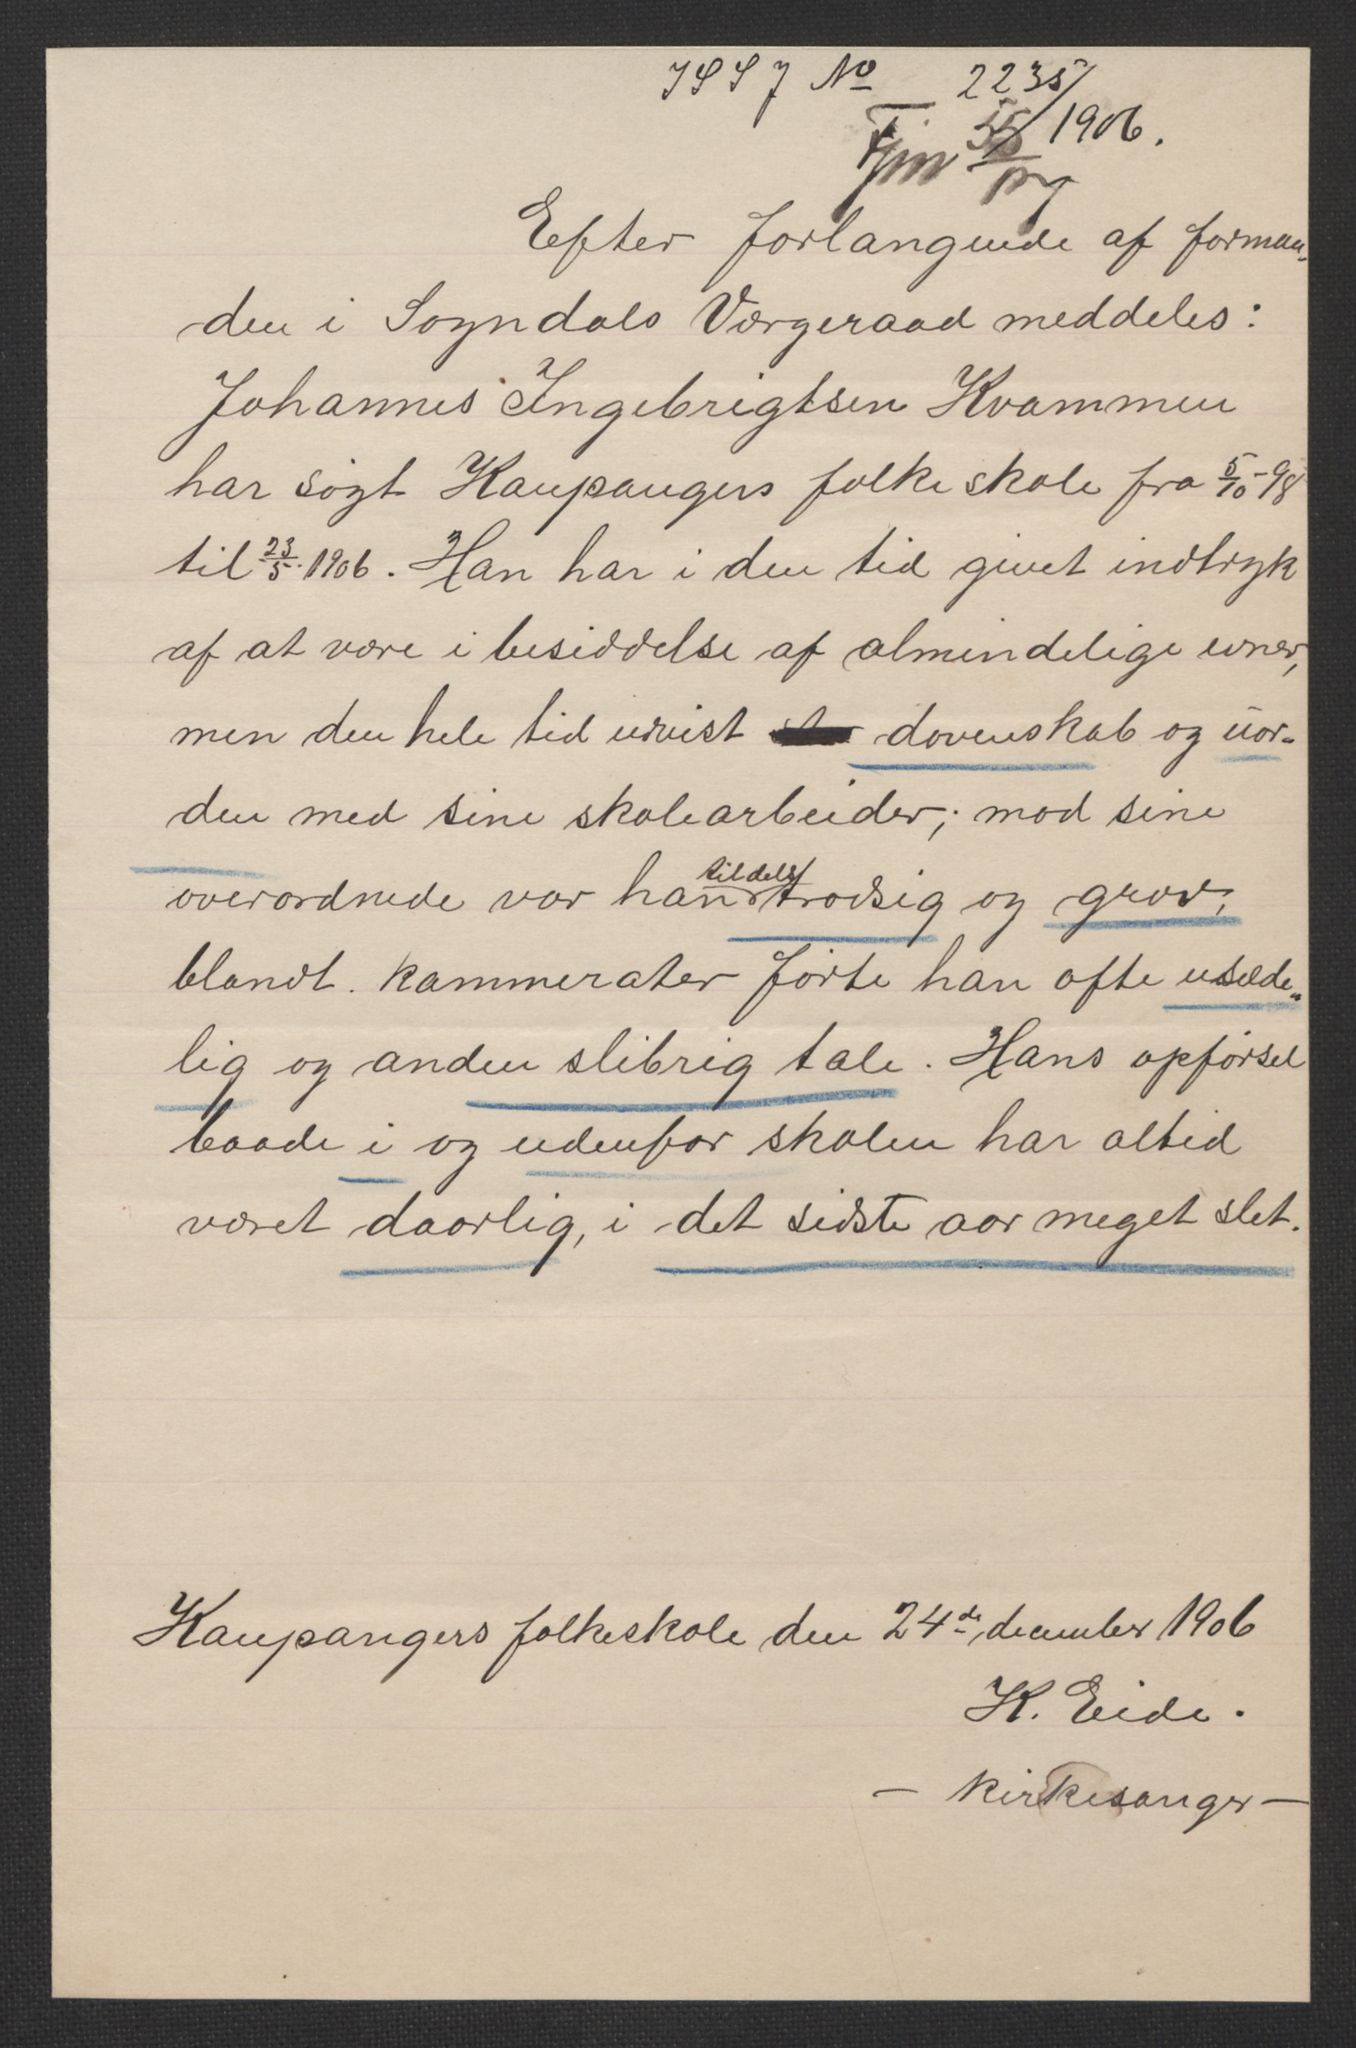 No 2235/
1906.
Efter forlangende af forman-
den i Sogndals Værgeraad meddeles:
Johannes Ingebrigtsen Kvammen
har søgt Kaupangers folkeskole fra 5/10-98
til 23/5. 1906. Han har i den tid givet indtryk
af at være i besiddelse af almindelige evner,
men den hele tid udvist dovenskab og uor-
den med sine skolearbeider; mod sine
tildels
overordnede var han trodsig og grov;
blandt kammerater førte han ofte usæde-
lig og anden slibrig tale. Hans opførsel
baade i og udenfor skolen har altid
været daarlig, i det sidste aar meget slet.
Kaupangers folkeskole den 24de december 1906
K. Eide.
- kirkesanger -